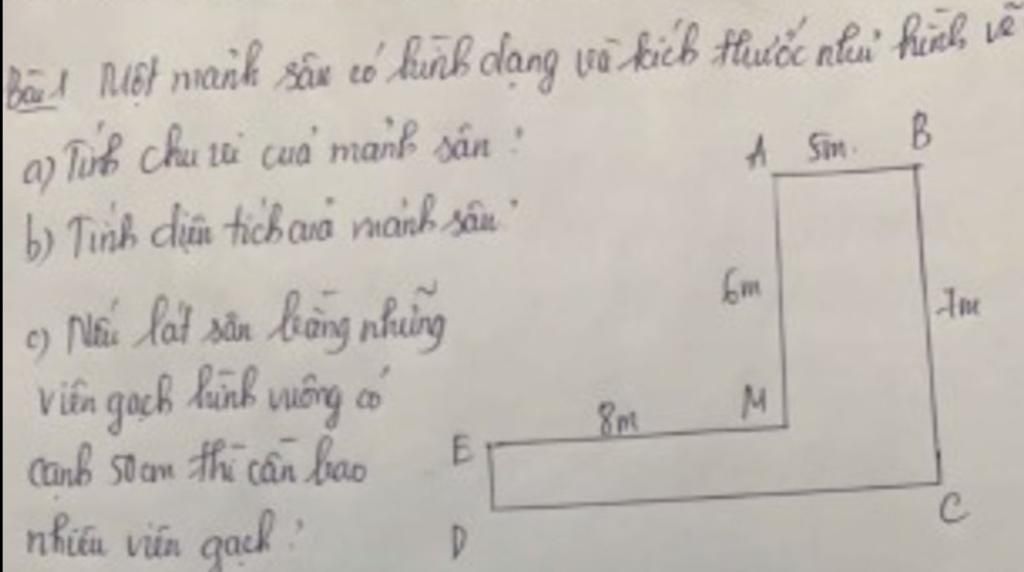 Bài 1 Một mảnh sân có hình dạng và kích thước như hình vẽ
a) Tính chu vi của mảnh sân ?
b) Tính diện tích của mảnh sân ?
c) Nếu lát sân bằng những
viên gạch hình vuông có
cạnh 50cm thì cần bao
nhiêu viên gạch ?
A 5m B
6m 7m
8m M
E
D C